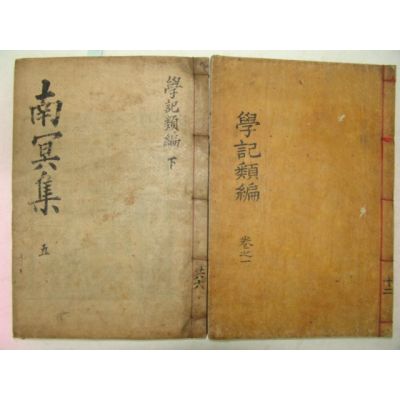 南冥集
五
學記類編
下
共六
學記類編
卷之一
十二